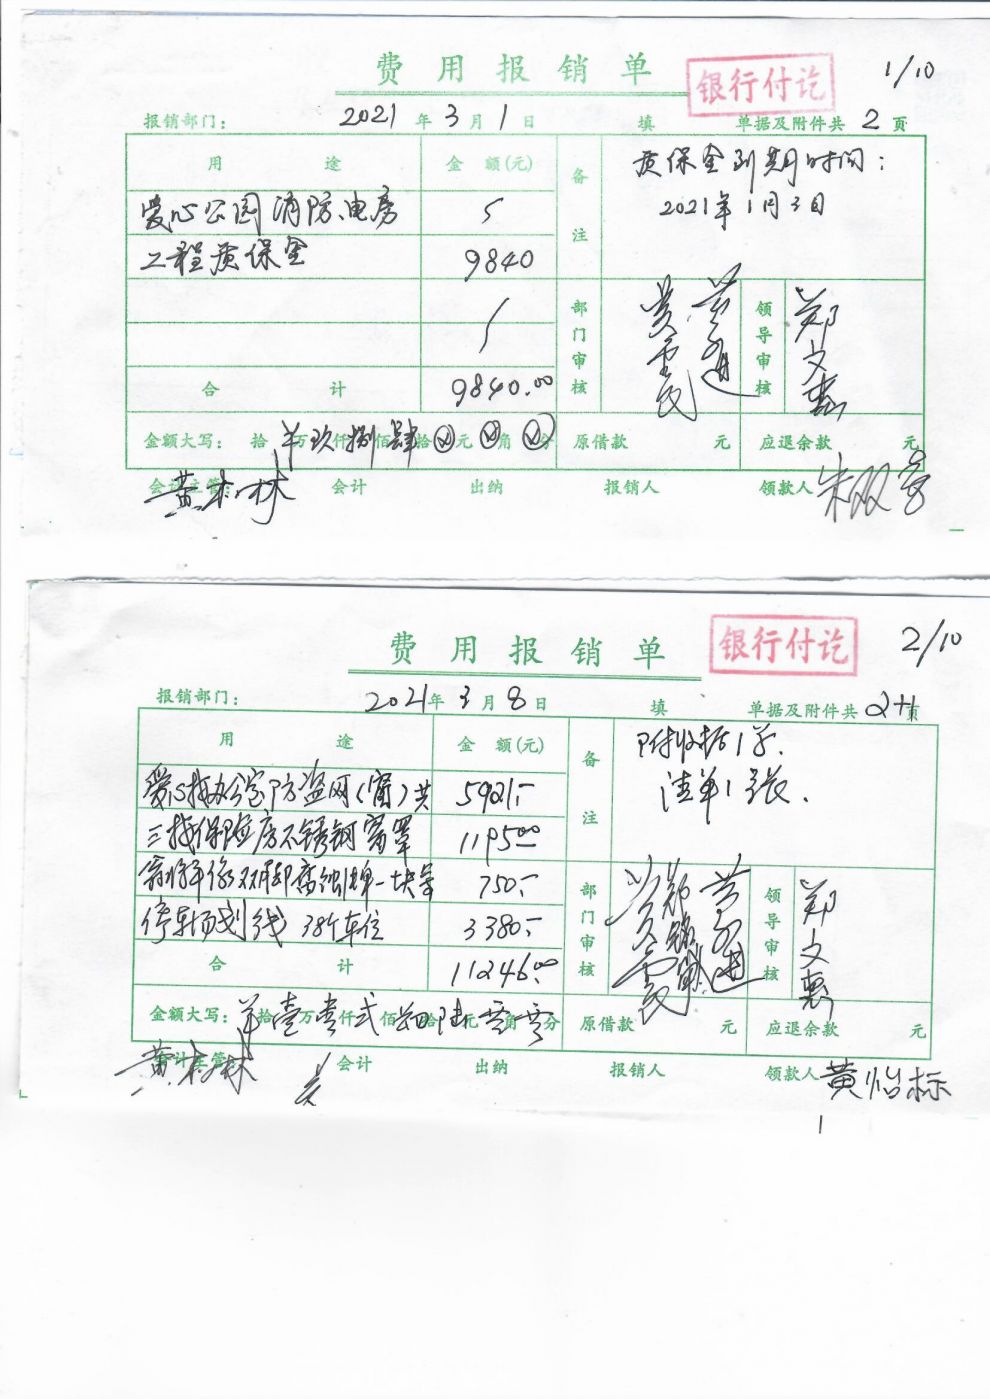 费用报销单
银行付讫
1/10
报销部门： 2021年3月1日 填 单据及附件共2页
用途 金额(元) 备注
质保金到期时间：
2021年1月3日
爱心公园消防、电房
工程质保金 9840
部门审核 领导审核 郑文惠
合计 9840.00
金额大写： 拾 万玖仟捌佰肆拾元角分 原借款 元 应退余款 元
会计主管： 黄木林 会计 出纳 报销人 领款人
费用报销单
银行付讫
2/10
报销部门： 2021年3月8日 填 单据及附件共2+1页
用途 金额(元) 备注
附收据1张.
清单1张.
5921.-
1195.00
750.-
停车场划线 38个车位 3380.-
部门审核 领导审核 郑文惠
合计 11246.00
金额大写： 拾壹万壹仟贰佰肆拾陆元零角零分 原借款 元 应退余款 元
会计主管： 黄木林 会计 出纳 报销人 领款人 黄怡标